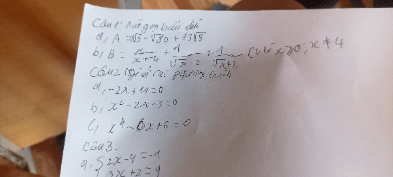 Câu 1: Rút gọn biểu thức
a, A = √5 - √30 + 13√5
b, B = x/x-4 + 1/√x-2 + 1/√x+2 (với x≥0, x≠4
Câu 2: Giải các phương trình
a, -2x+11=0
b, x²-2x-3=0
c, x⁴-6x+6=0
Câu 3:
a, { 2x-y=-1
3x+2=9